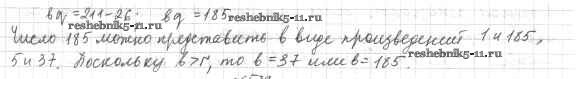 bq = 211-26; bq = 185
reshebnik5-11.ru reshebnik5-11.ru
Число 185 можно представить в виде произведений 1 и 185,
5 и 37. Поскольку b>r, то b = 37 или b = 185.
reshebnik5-11.ru